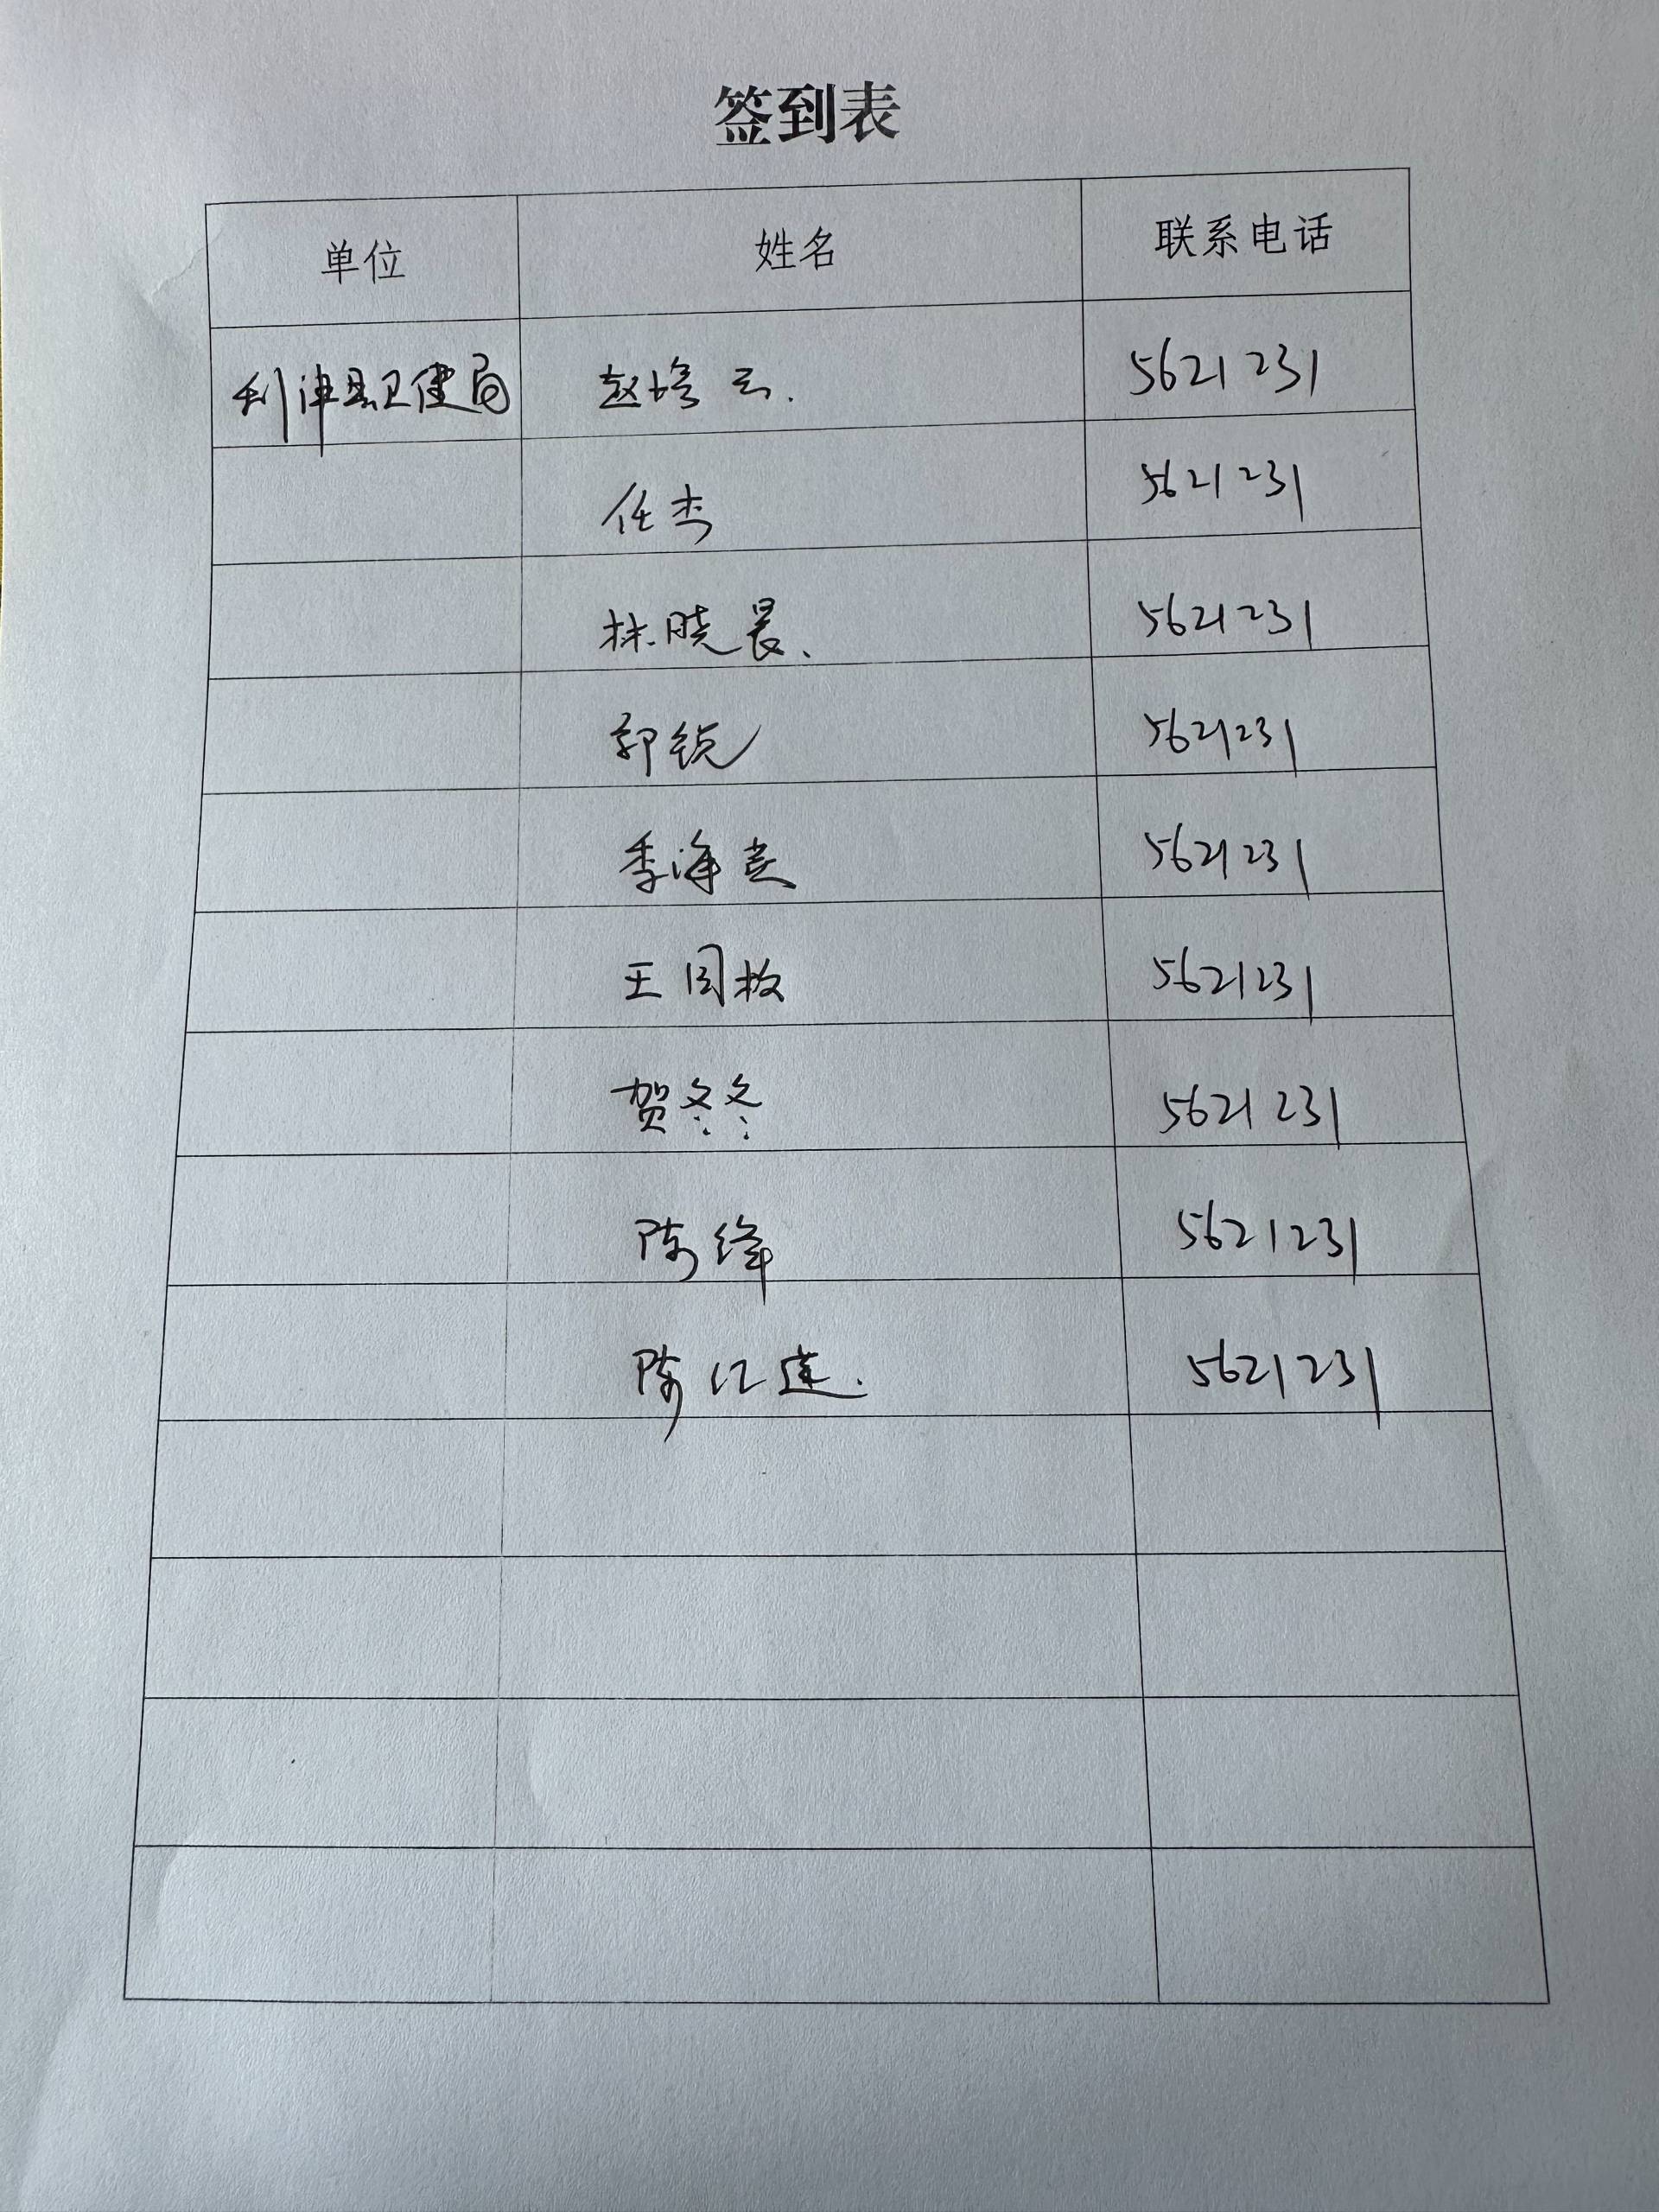 签到表
单位 姓名 联系电话
利津县卫健局 赵培云. 5621231
任杰 5621231
林晓晨、 5621231
郭锐 5621231
季海亮 5621231
王同教 5621231
贺冬冬 5621231
陈绛 5621231
陈江莲. 5621231